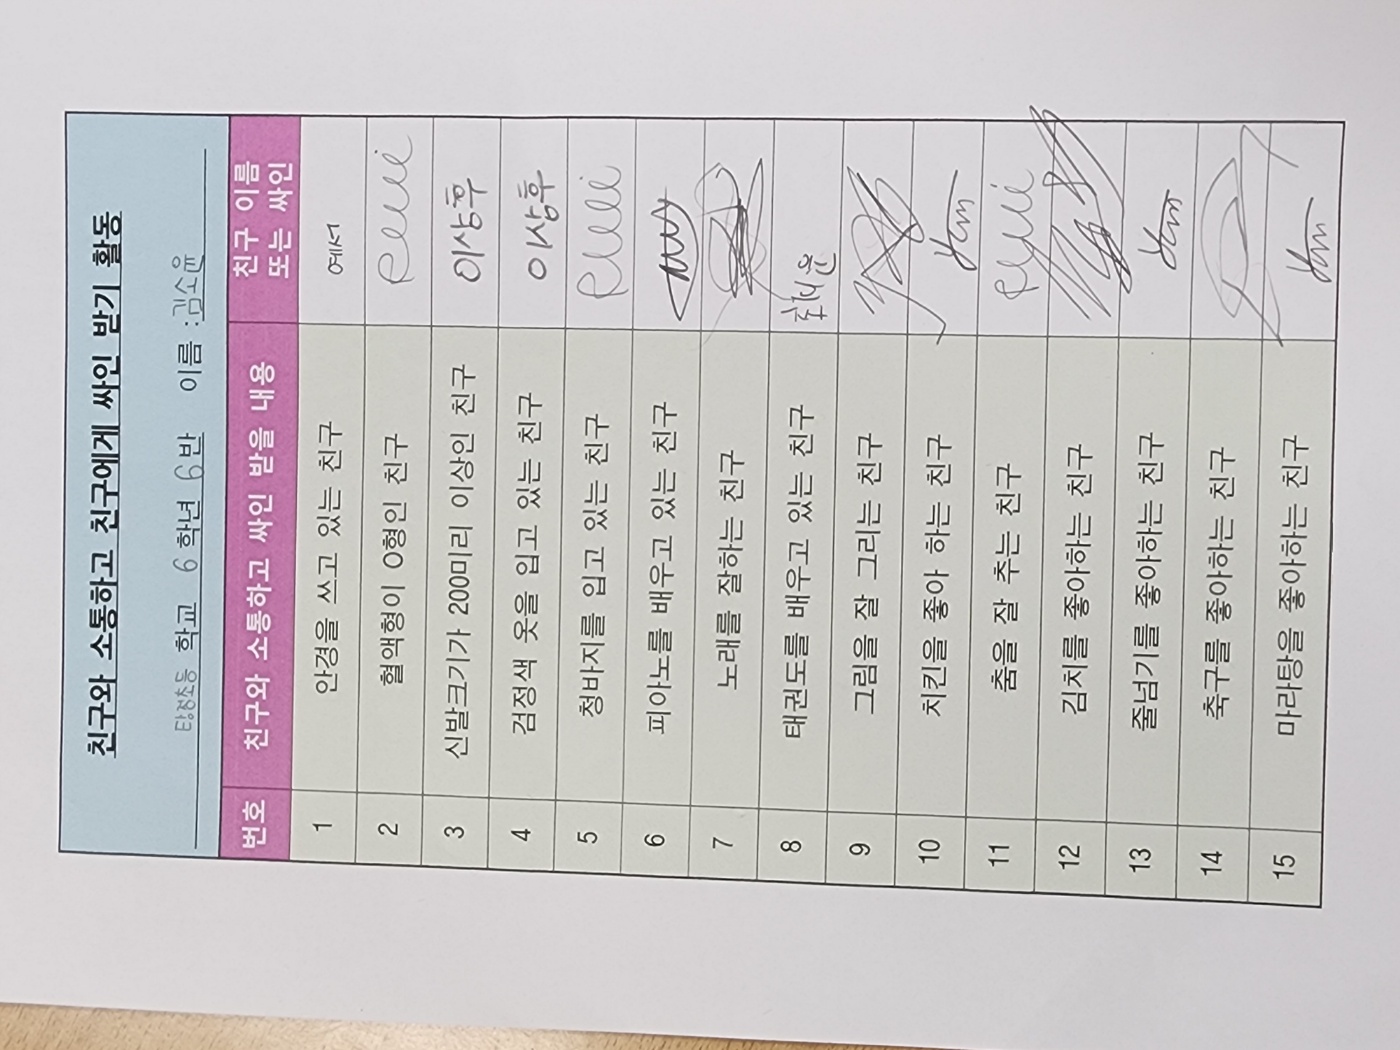 친구와 소통하고 친구에게 싸인 받기 활동
탕정초등 학교 6 학년 6반 이름 : 김소윤
번호 친구와 소통하고 싸인 받을 내용 친구 이름 또는 싸인
1 안경을 쓰고 있는 친구 예서
2 혈액형이 O형인 친구
3 신발크기가 200미리 이상인 친구 이상후
4 검정색 옷을 입고 있는 친구 이상후
5 청바지를 입고 있는 친구
6 피아노를 배우고 있는 친구
7 노래를 잘하는 친구
8 태권도를 배우고 있는 친구
9 그림을 잘 그리는 친구
10 치킨을 좋아 하는 친구
11 춤을 잘 추는 친구
12 김치를 좋아하는 친구
13 줄넘기를 좋아하는 친구
14 축구를 좋아하는 친구
15 마라탕을 좋아하는 친구